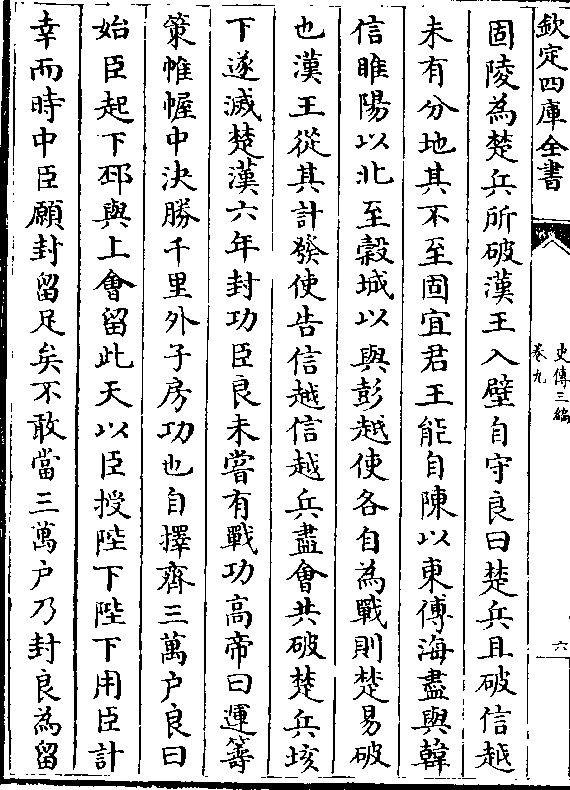 欽定四庫全書
史傳三編
卷九
六
固陵為楚兵所破漢王入壁自守良曰楚兵且破信越
未有分地其不至固宜君王能自陳以東傅海盡與韓
信睢陽以北至穀城以與彭越使各自為戰則楚易破
也漢王從其計發使告信越信越兵盡會共破楚兵垓
下遂滅楚漢六年封功臣良未嘗有戰功高帝曰運籌
策帷幄中決勝千里外子房功也自擇齊三萬戸良曰
始臣起下邳與上會留此天以臣授陛下陛下用臣計
幸而時中臣願封留足矣不敢當三萬户乃封良為留